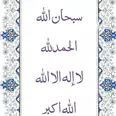 سبحان الله
الحمدلله
لا إله الا الله
الله اكبر